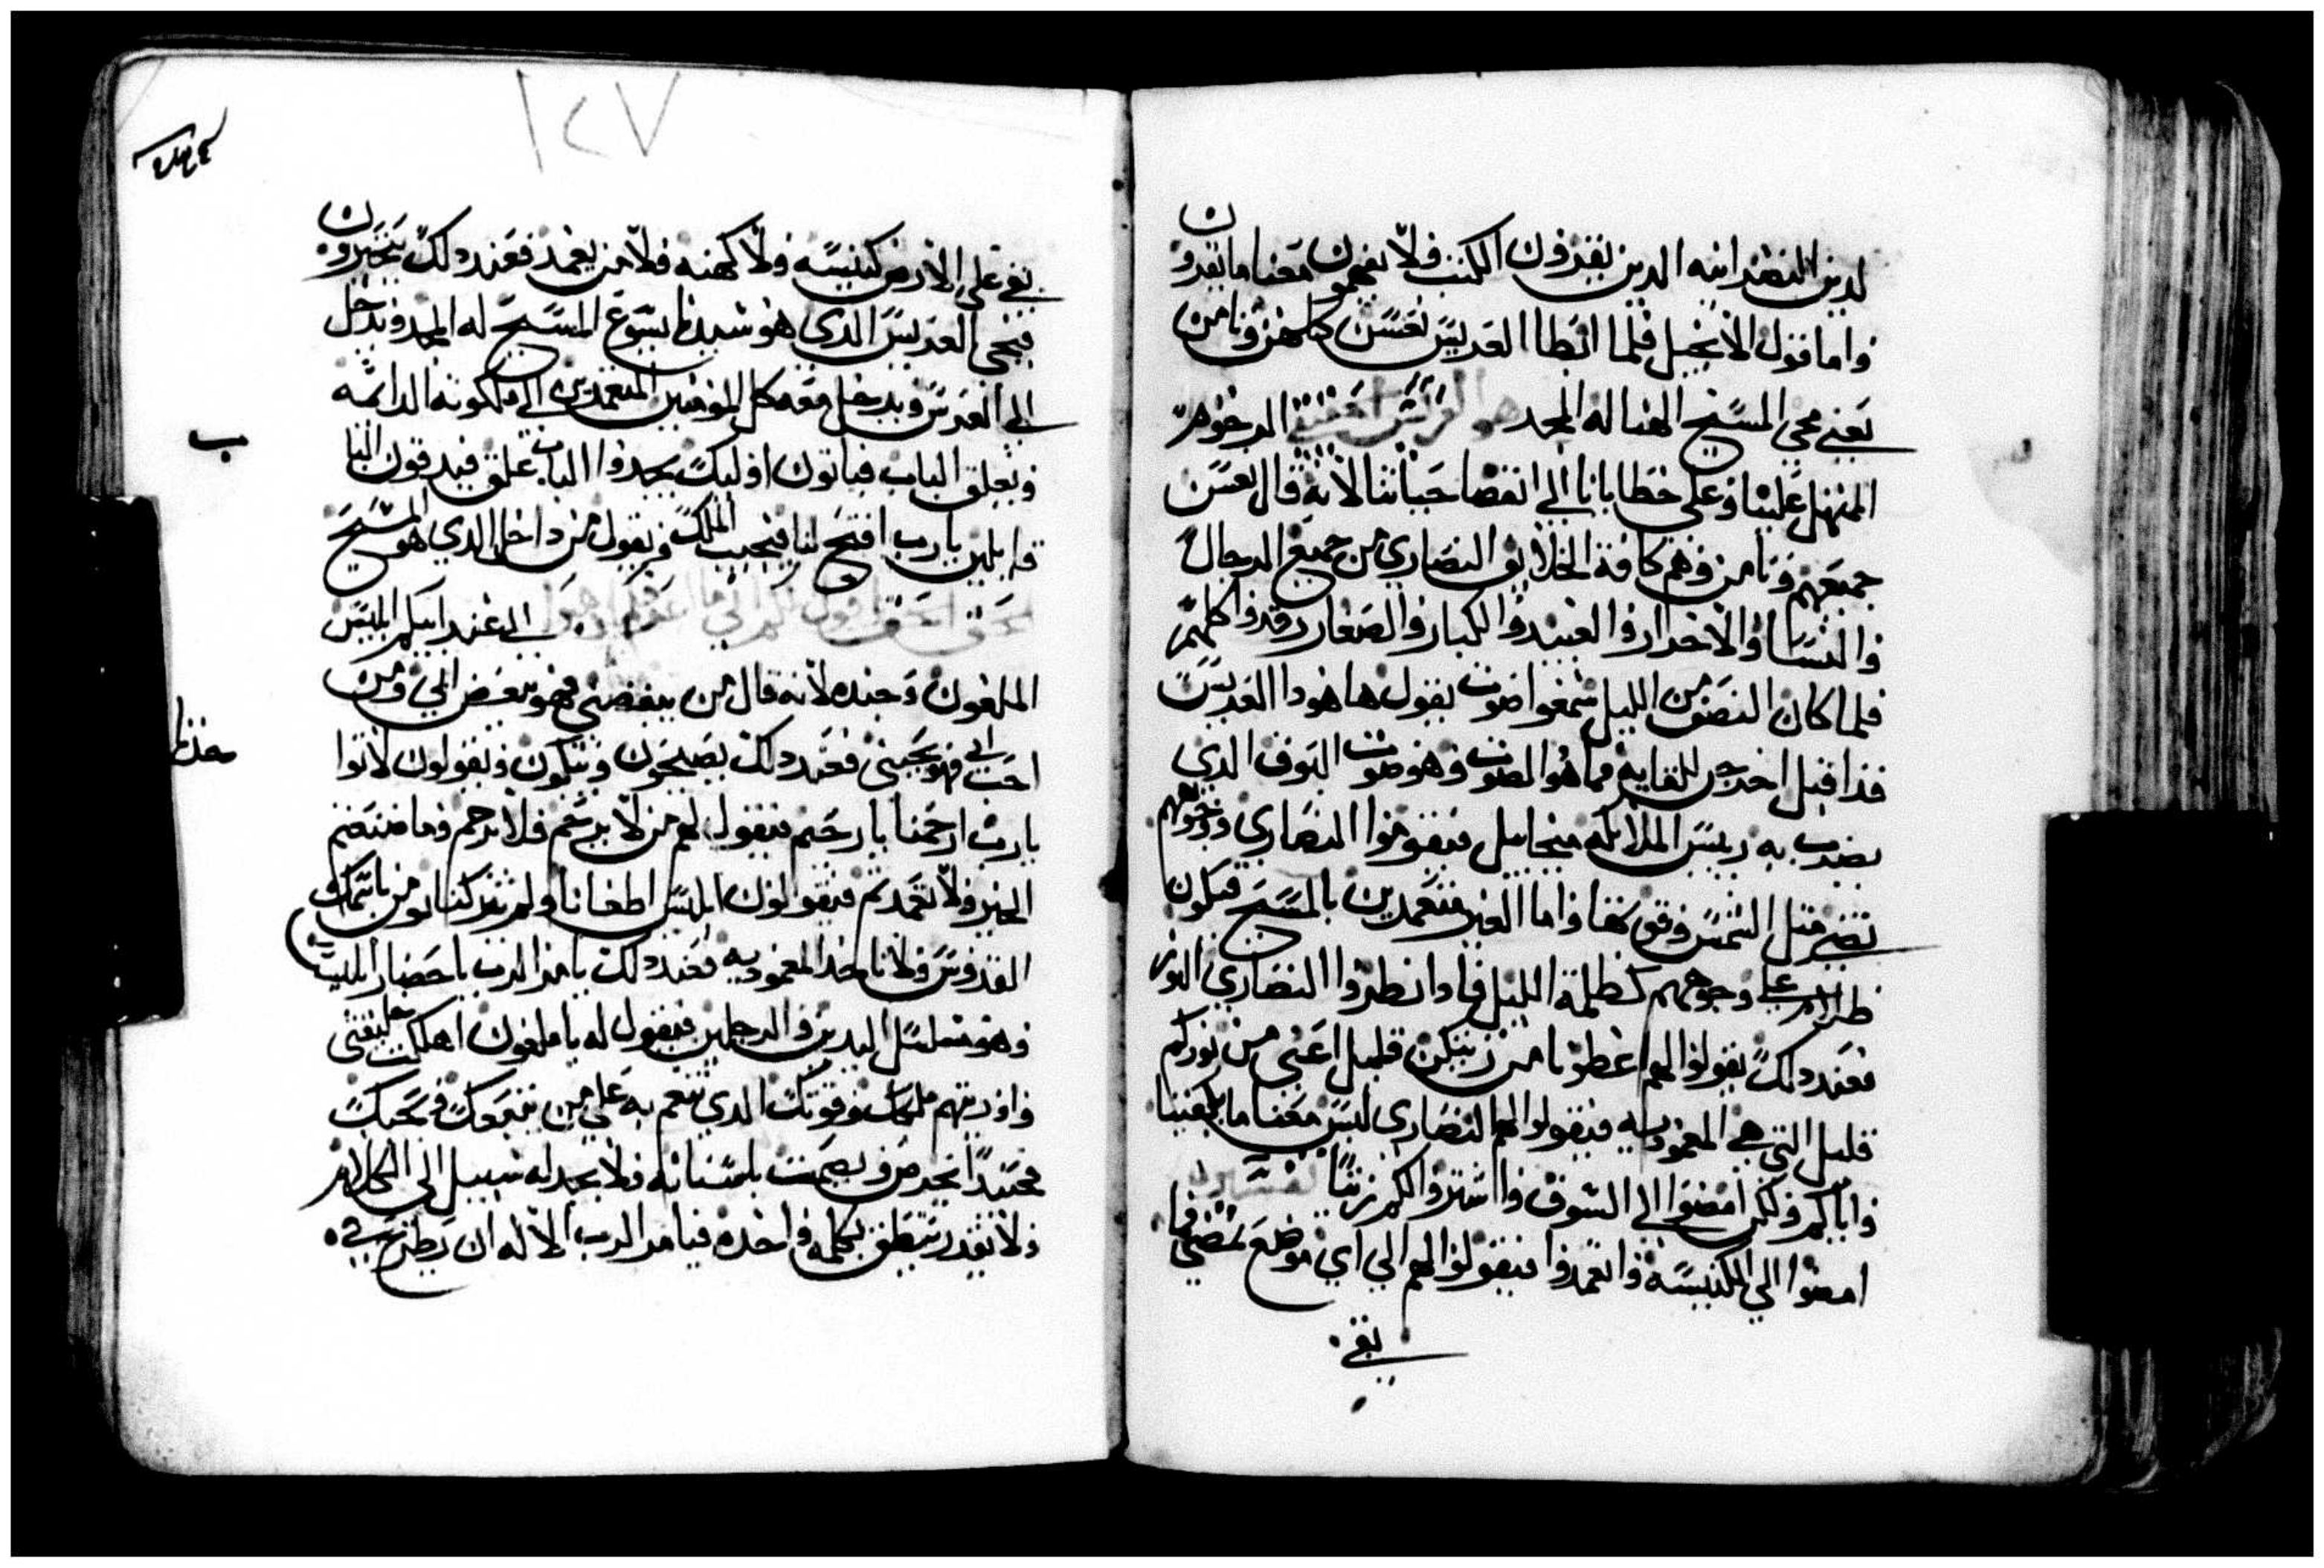 لدين النصرانيه الدين يقرون الكتب ولا يفهمون معنا ما يقرون
واما قول الانجيل فلما ابطا العريس نعسن كلهن ونامن
يعني مجي المسيح الهنا له المجد هو المرخوم
المتهل علينا وعلى خطايانا الى انقضا حياتنا لانه قال نعسن
جميعهم ونامن وهم كافة الخلايق النصاري من جميع الرجال
والنسا والاحرار والعبيد والكبار والصغار رقدوا كلهم
فلما كان النصف من الليل سمعوا صوت يقول ها هودا العريس
قد اقبل اخرجن للقايه فما هو الصوت وهو صوت البوق الدي
يضرب به رييس الملايكه ميخاييل فيقوموا النصاري ووجوههم
تضي مثل الشمس وفوق كفا واما الغير متعمدين بالمسيح فيكون
ظلام على وجوههم كظلمة الليل فادا نظروا النصاري النور
فعند دلك يقولوا لهم اعطونا من زيتكن قليل اعني من نوركم
قليل التي هي المعموديه فيقولوا لهم النصاري ليس معنا ما يكفينا
واياكم ولكن امضوا الي السوق واشتروا لكم زيتا
امضوا الي الكنيسه واتعمدوا فيقولوا لهم الي اي موضع نمضي فما
بقي
١٢٧
بقي على الارض كنيسه ولا كهنه ولا من يعمد فعند دلك يتحيرون
فيجي العريس الدي هو سيدنا يسوع المسيح له المجد ويدخل
الي العرس ويدخل معه كل المومنين المتعمدين الي ملكوته الدايمه
ويغلق الباب فياتون اوليك يجدوا الباب غلق فيدقون البا
ب
قايلين يارب افتح لنا فيجيب الملك ويقول من داخل الدي هو المسيح
حق اقول لكم اني ما اعرفكم الي عند ابيكم ابليس
الملعون وجنده لانه قال من يبغضني فهو يبغض ابي ومن
احب ابي فهو يحبني فعند دلك يصيحون ويبكون ويقولون لانوا
يارب ارحمنا يا رحيم فيقول لهم من لا يرحم فلا يرحم وما صنعتم
الخير ولا تعمدتم فيقولون ابليس اطغانا ولم يتركنا نومن باسمك
القدوس ولا ناخد المعموديه فعند دلك يامر الرب باحضار ابليس
وهو مسلسل اليدين والرجلين فيقول له يا ملعون اهلكت خليقتي
واوريتهم ملكك وقوتك الدي تنعم به على من يتبعك ويحبك
فحينيدا يخرص ويصمت بلسانه ولا يجد له سبيل الي الكلام
ولا يقدر ينطق بكلمه واحده فيامر الرب الاله ان يطرح في